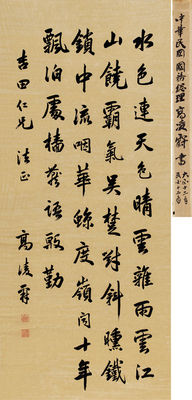 水色連天色晴雲雜雨雲江
山饒霸氣吳楚對斜曛鐵
鎖中流咽華鯨度嶺聞十年
飄泊處檣燕語殷勤
吉田仁兄 法正
高凌霨
中華民國國務總理高凌霨書
大正十二年
民國十二年